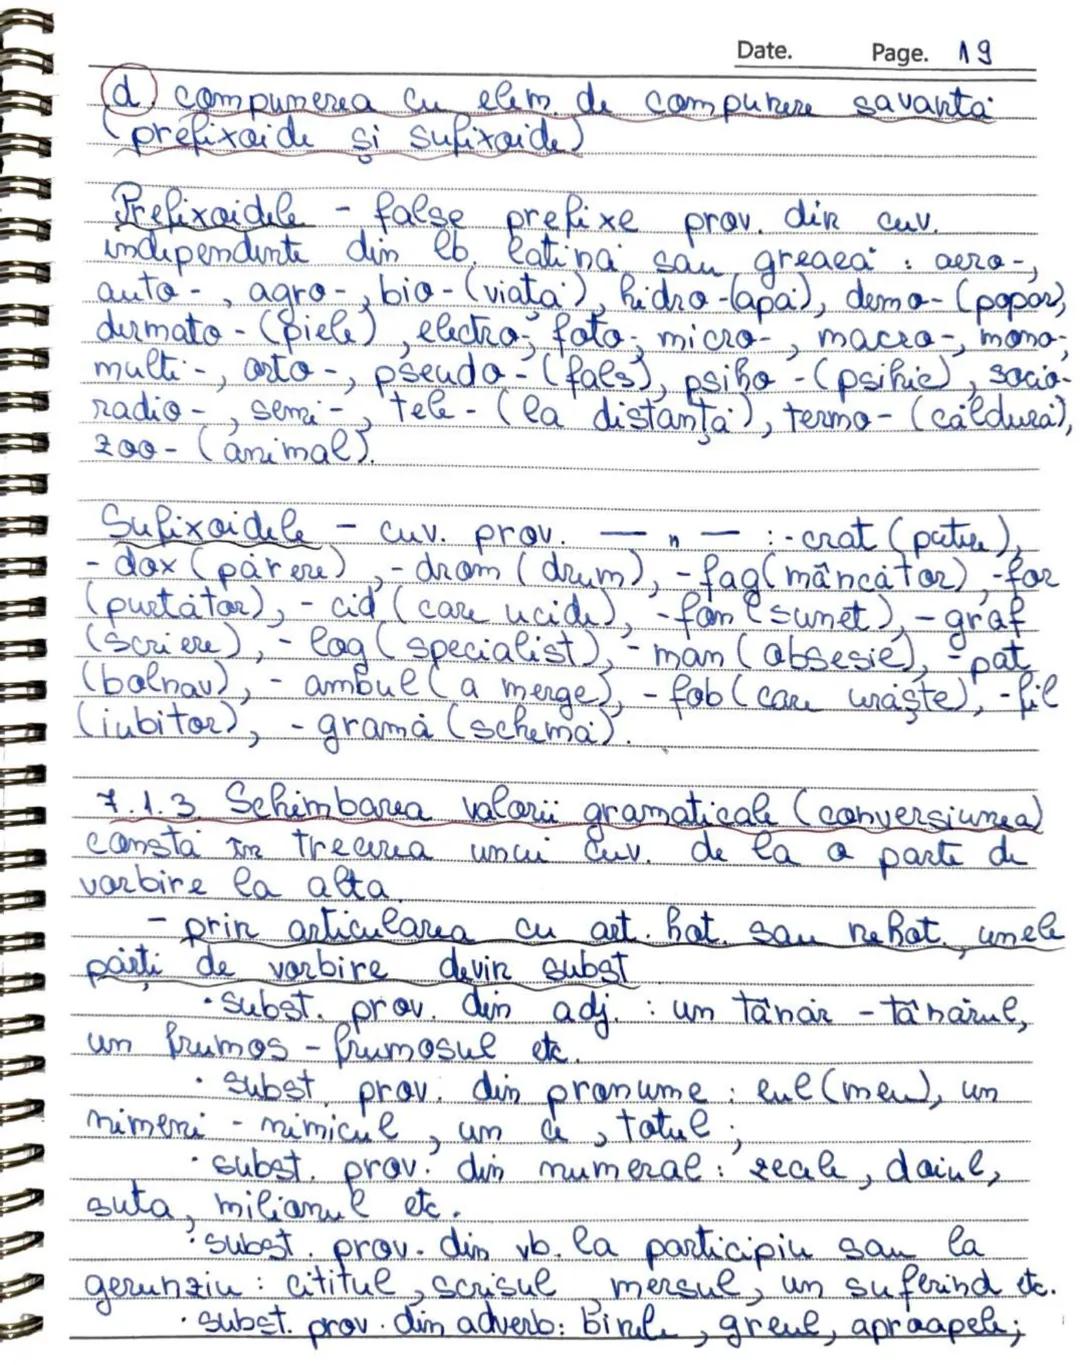 Date. Page. 19
d) compunerea cu elem. de compunere savantă
(prefixoide și sufixoide)
Prefixoidele - false prefixe prov. din cuv.
independente din lb. latină sau greacă : aero-,
auto-, agro-, bio-(viață), hidro-(apă), demo-(popor),
dermato-(piele), electro-, foto-, micro-, macro-, mono-,
multi-, orto-, pseudo-(fals), psiho-(psihic), socio-
radio-, semi-, tele-(la distanță), termo-(căldură),
zoo-(animal).
Sufixoidele - cuv. prov. — " — : -crat (putere),
-dox (părere), -drom (drum), -fag (mâncător), -for
(purtător), -cid (care ucide), -fon (sunet), -graf
(scriere), -log (specialist), -man (obsesie), -pat
(bolnav), -ambul (a merge), -fob (care urăște), -fil
(iubitor), -gramă (schemă).
7.1.3. Schimbarea valorii gramaticale (conversiunea)
constă în trecerea unui cuv. de la o parte de
vorbire la alta
- prin articularea cu art. hot. sau nehot., unele
părți de vorbire devin subst
• subst. prov. din adj. : un tânăr - tânărul,
un frumos - frumosul etc.
• subst. prov. din pronume : eul (meu), un
nimeni - nimicul, un ce, totul ;
• subst. prov. din numeral : zecele, doiul,
suta, milionul etc.
• subst. prov. din vb. la participiu sau la
gerunziu : cititul, scrisul, mersul, un suferind etc.
• subst. prov. din adverb: binele, greul, aproapele;